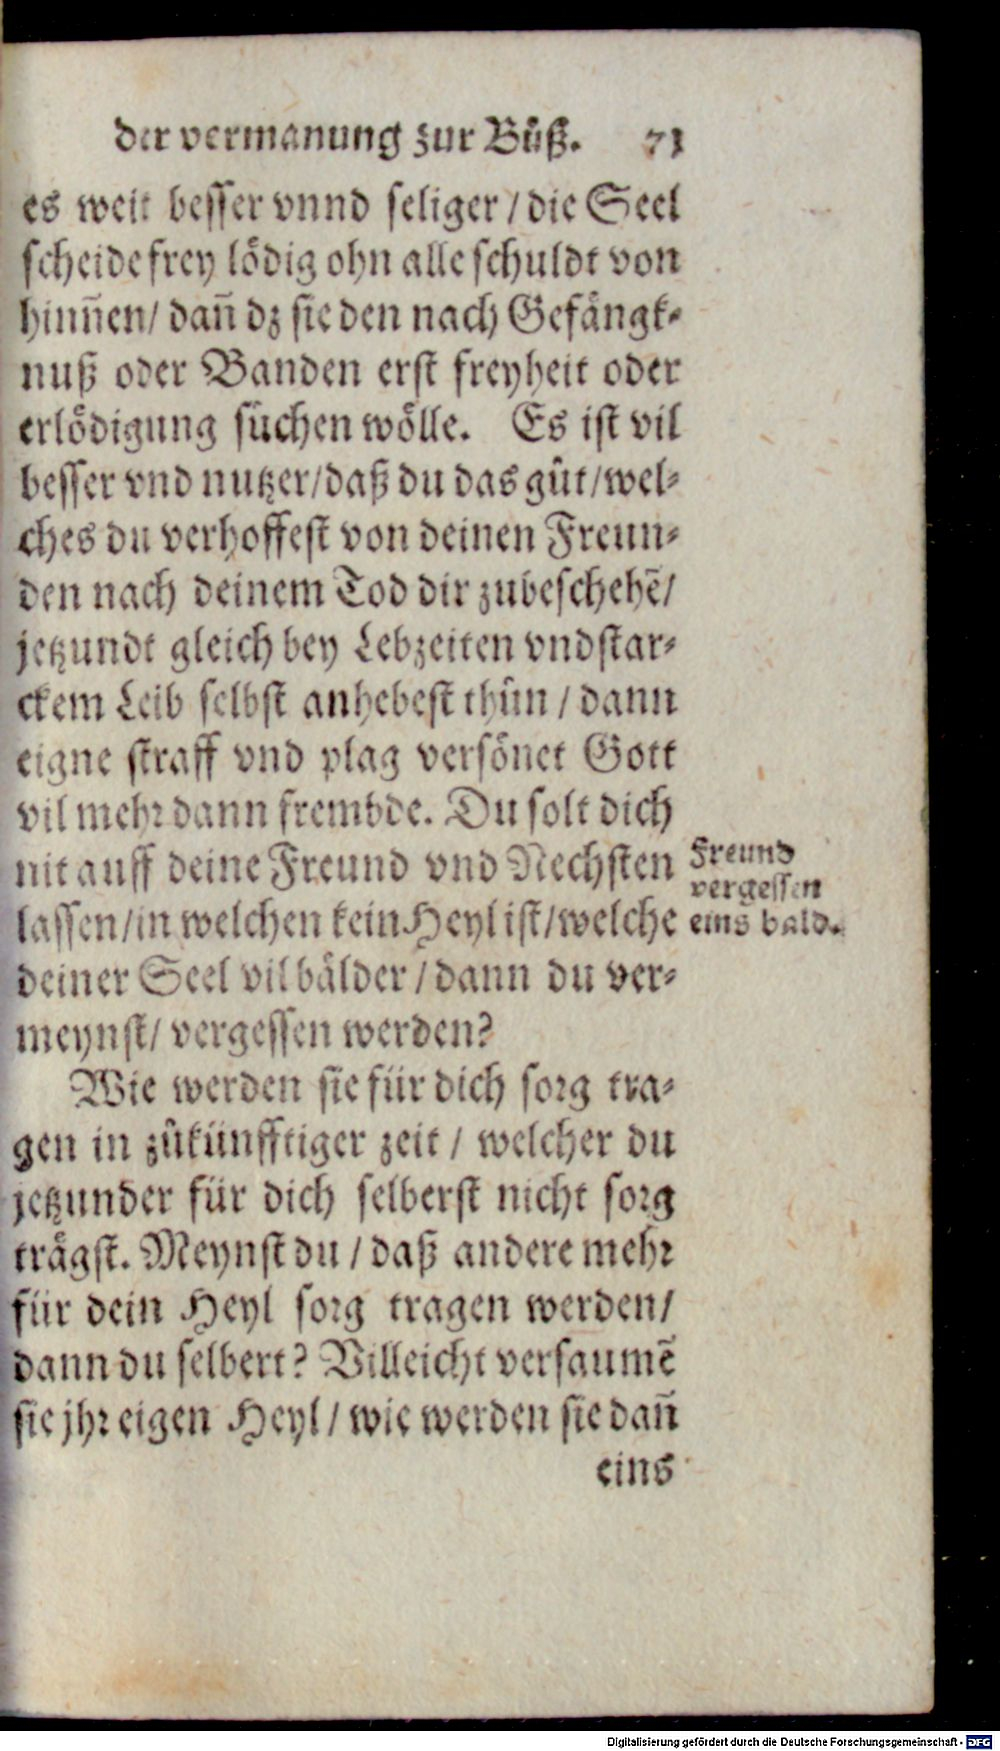 der vermanung zur Bůß. 71
es weit besser vnnd seliger / die Seel
scheide frey lödig ohn alle schuldt von
hinn̄en / dañ dz sie den nach Gefängk-
nuß oder Banden erst freyheit oder
erlödigung sůchen wölle. Es ist vil
besser vnd nutzer / daß du das gůt / wel-
ches du verhoffest von deinen Freun-
den nach deinem Tod dir zubeschehē /
jetzundt gleich bey Lebzeiten vnd star-
ckem Leib selbst anhebest thůn / dann
eigne straff vnd plag versönet Gott
vil mehr dann frembde. Du solt dich
nit auff deine Freund vnd Nechsten
lassen / in welchen kein Heyl ist / welche
deiner Seel vil bälder / dann du ver-
meynst / vergessen werden?
Freund
vergessen
eins bald.
Wie werden sie für dich sorg tra-
gen in zůkünfftiger zeit / welcher du
jetzunder für dich selberst nicht sorg
trägst. Meynst du / daß andere mehr
für dein Heyl sorg tragen werden /
dann du selbert? Villeicht versaumē
sie jhr eigen Heyl / wie werden sie dañ
eins
Digitalisierung gefördert durch die Deutsche Forschungsgemeinschaft - DFG